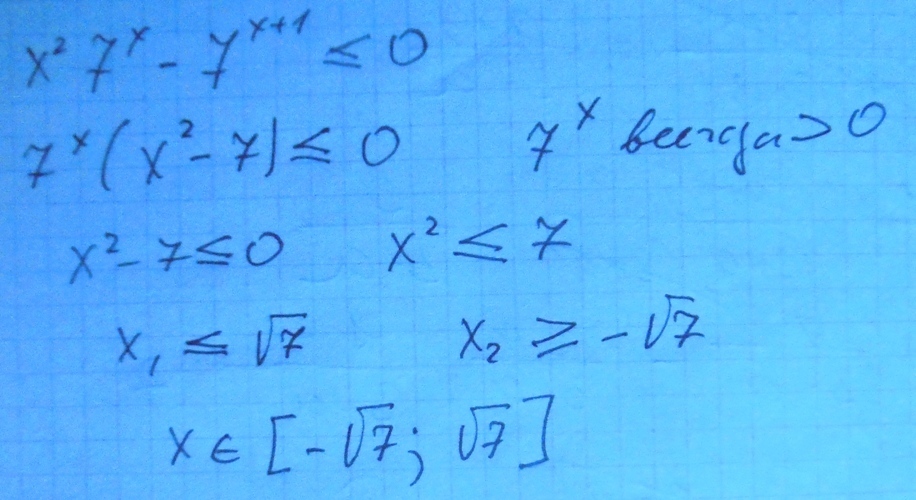 x² 7ˣ - 7ˣ⁺¹ ≤ 0
7ˣ(x² - 7) ≤ 0 7ˣ всегда > 0
x² - 7 ≤ 0 x² ≤ 7
x₁ ≤ √7 x₂ ≥ -√7
x ∈ [-√7; √7]